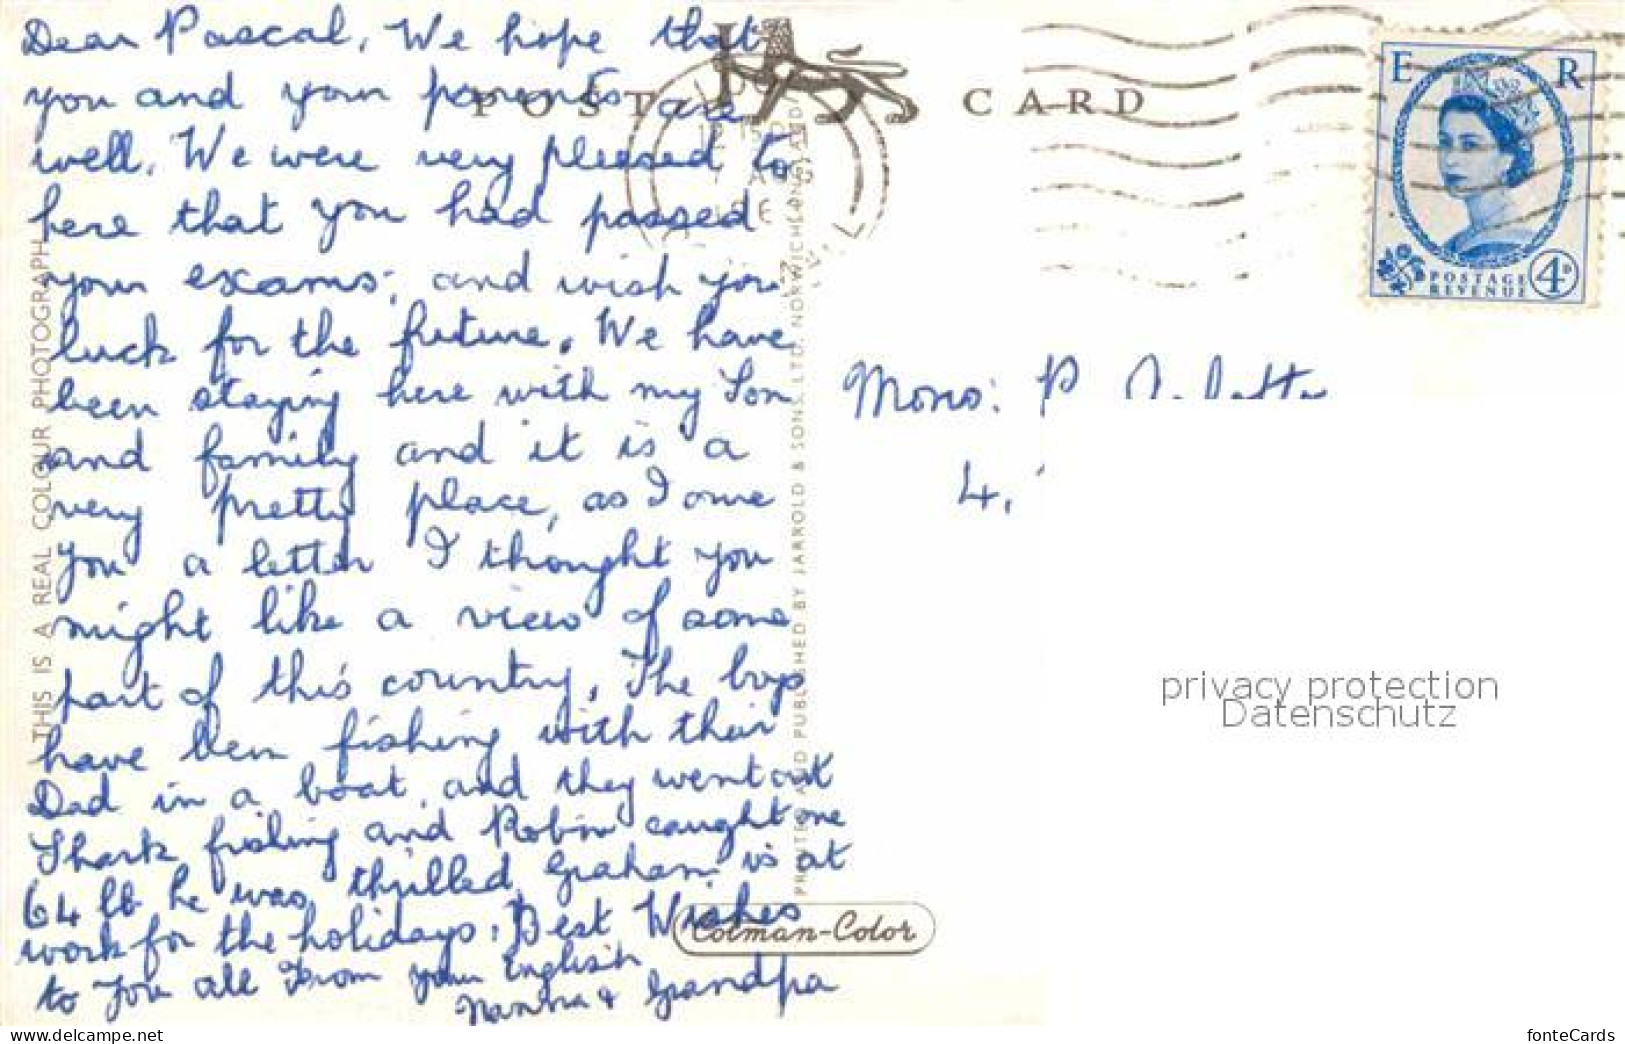 Dear Pascal, We hope that
you and your parents are
well. We were very pleased to
here that you had passed
your exams, and wish you
luck for the future. We have
been staying here with my Son
and family and it is a
very pretty place, as I owe
you a letter I thought you
might like a view of some
part of this country. The boys
have been fishing with their
Dad in a boat, and they went out
Shark fishing and Robin caught one
64 lb he was thrilled, Graham is at
work for the holidays. Best Wishes
to You all From your English
Nanna & Grandpa
POST CARD
E R
POSTAGE
REVENUE
4D
Mons: P.
4,
THIS IS A REAL COLOUR PHOTOGRAPH
PRINTED AND PUBLISHED BY JARROLD & SONS LTD. NORWICH ENGLAND
Colman-Color
privacy protection
Datenschutz
delcampe.net
fonteCards